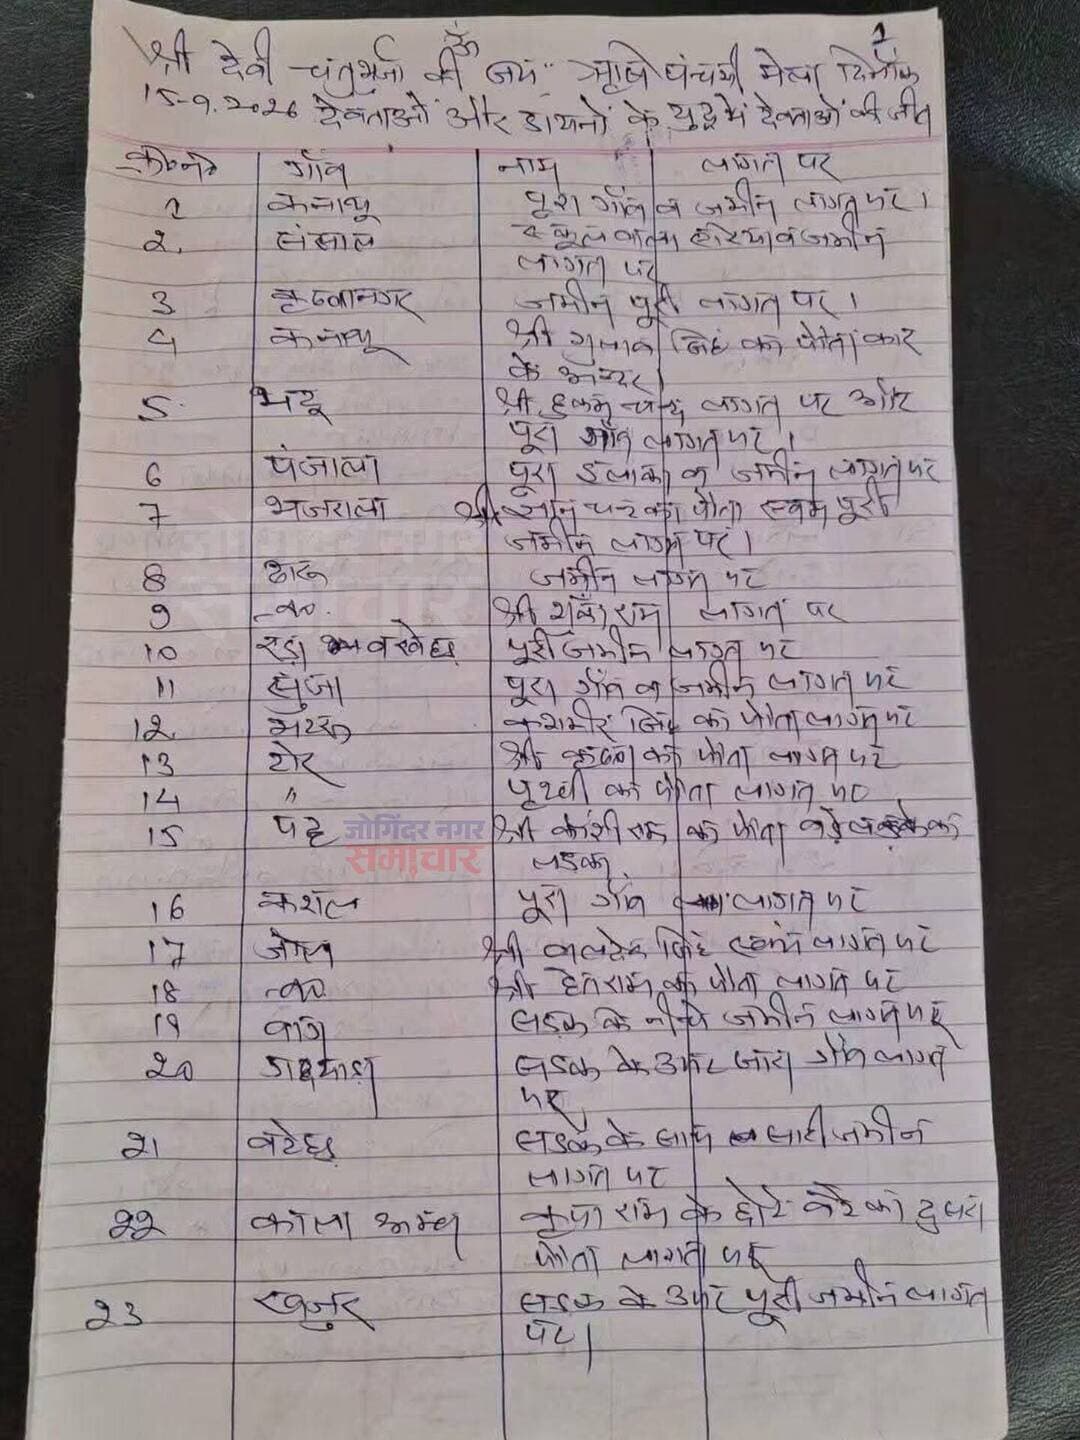 ॐ
1
श्री देवी चतुर्भुजा की जय" ऋषि पंचमी मेला दिनांक
15-9.2026 देवताओं और डायनों के युद्ध में देवताओं की जीत
क्र०न० गाँव नाम लागत पर
1 कनाथू पूरा गाँव व जमीन लागत पर।
2. संसाल स्कूल वाला एरिया व जमीन
लागत पर
3 कृष्णानगर जमीन पूरी लागत पर।
4 कनाथू श्री गुलाब सिंह का पोता कार
के अन्दर।
5. भटू श्री हुकम चन्द लागत पर और
पूरा गाँव लागत पर।
6 पंजाला पूरा इलाका व जमीन लागत पर
7 भजराला श्री ज्ञान चन्द का पोता पूरी
जमीन लागत पर।
8 जमीन लागत पर
9 श्री राम लागत पर
10 पूरी जमीन लागत पर
11 सुंजा पूरा गाँव व जमीन लागत पर
12 कशमीर सिंह का पोता लागत पर
13 शेर श्री कृष्ण का पोता लागत पर
14 " पृथ्वी का पोता लागत पर
15 श्री कांशी राम का पोता बड़े लड़के का
लड़का
जोगिंदर नगर
समाचार
16 कशल पूरा गाँव लागत पर
17 जोल श्री बलदेव सिंह लागत पर
18 श्री हेतराम का पोता लागत पर
19 बाग सड़क के नीचे जमीन लागत पर
20 सड़क के ऊपर सारा गाँव लागत
पर
21 बटेहड़ सड़क के साथ सारी जमीन
लागत पर
22 काला अम्ब कृपा राम के छोटे बेटे का दुसरा
पोता लागत पर
23 खजुर सड़क के ऊपर पूरी जमीन लागत
पर।